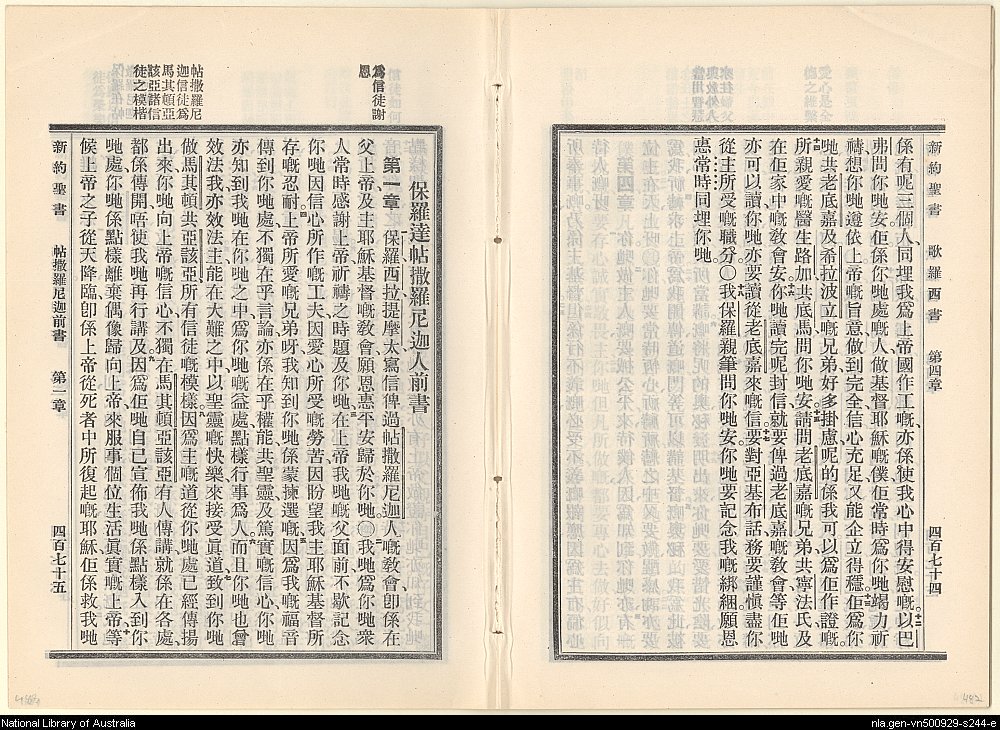 新約聖書　歌羅西書　第四章　四百七十四
係有呢三個人、同埋我爲上帝國作工嘅、亦係使我心中得安慰嘅。十二以巴
弗問你哋安、佢係你哋處嘅人、做基督耶穌嘅僕、佢常時爲你哋竭力祈
禱、想你哋遵依上帝嘅旨意、做到完全、信心充足、又能企立得穩。佢爲你
哋共老底嘉及希拉波立嘅兄弟、好多掛慮、呢的係我可以爲佢作證嘅。
十四所親愛嘅醫生路加、共底馬、問你哋安。十五請問老底嘉嘅兄弟、共寧法氏、及
在佢家中嘅敎會安。十六你哋讀完呢封信、就要俾過老底嘉嘅敎會、等佢哋
亦可以讀、你哋亦要讀從老底嘉來嘅信。十七要對亞基布話、務要謹愼盡你
從主所受嘅職分。〇十八我保羅親筆問你哋安、你哋要記念我嘅綁綑、願恩
惠常時同埋你哋。
爲信徒謝
恩
帖撒羅尼
迦信徒爲
馬其頓亞
該亞諸信
徒之模楷
保羅達帖撒羅尼迦人前書
第一章　一保羅、西拉、提摩太、寫信俾過帖撒羅尼迦人嘅敎會、卽係在
父上帝、及主耶穌基督嘅敎會、願恩惠平安歸於你哋。〇二我哋爲你哋衆
人常時感謝上帝、祈禱之時、題及你哋、三在上帝我哋嘅父面前、不歇記念
你哋因信心所作嘅工夫、因愛心所受嘅勞苦、因盼望我主耶穌基督所
存嘅忍耐。四上帝所愛嘅兄弟呀、我知到你哋係蒙揀選嘅、五因爲我嘅福音
傳到你哋處、不獨在乎言論、亦係在乎權能、共聖靈、及篤實嘅信心、你哋
亦知到我哋在你哋之中、爲你哋嘅益處、點樣行事爲人。六而且你哋也曾
效法我、亦效法主、能在大難之中、以聖靈嘅快樂來接受眞道、七致到你哋
做馬其頓共亞該亞所有信徒嘅模樣。八因爲主嘅道、從你哋處已經傳揚
出來、你哋向上帝嘅信心、不獨在馬其頓亞該亞有人傳講、就係在各處、
都係傳開、唔使我哋再行講及。九因爲佢哋自己宣佈我哋係點樣入到你
哋處、你哋係點樣離棄偶像、歸向上帝、來服事個位生活眞實嘅上帝、十等
候上帝之子從天降臨、卽係上帝從死者中所復起嘅耶穌、佢係救我哋
新約聖書　帖撒羅尼迦前書　第一章　四百七十五
482
National Library of Australia
nla.gen-vn500929-s244-e